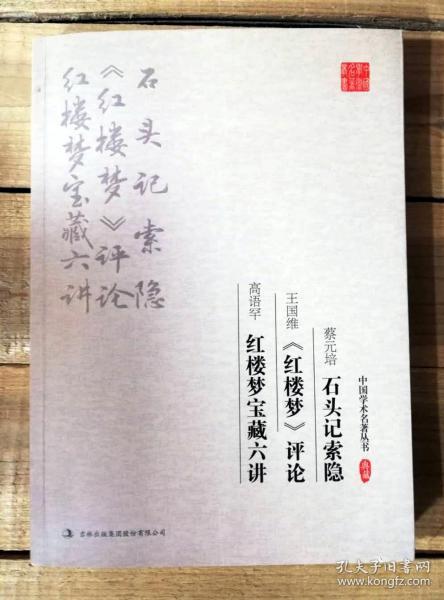 石头记索隐
《红楼梦》评论
红楼梦宝藏六讲
中国学术名著丛书
典藏
蔡元培 石头记索隐
王国维 《红楼梦》评论
高语罕 红楼梦宝藏六讲
吉林出版集团股份有限公司
孔夫子旧书网